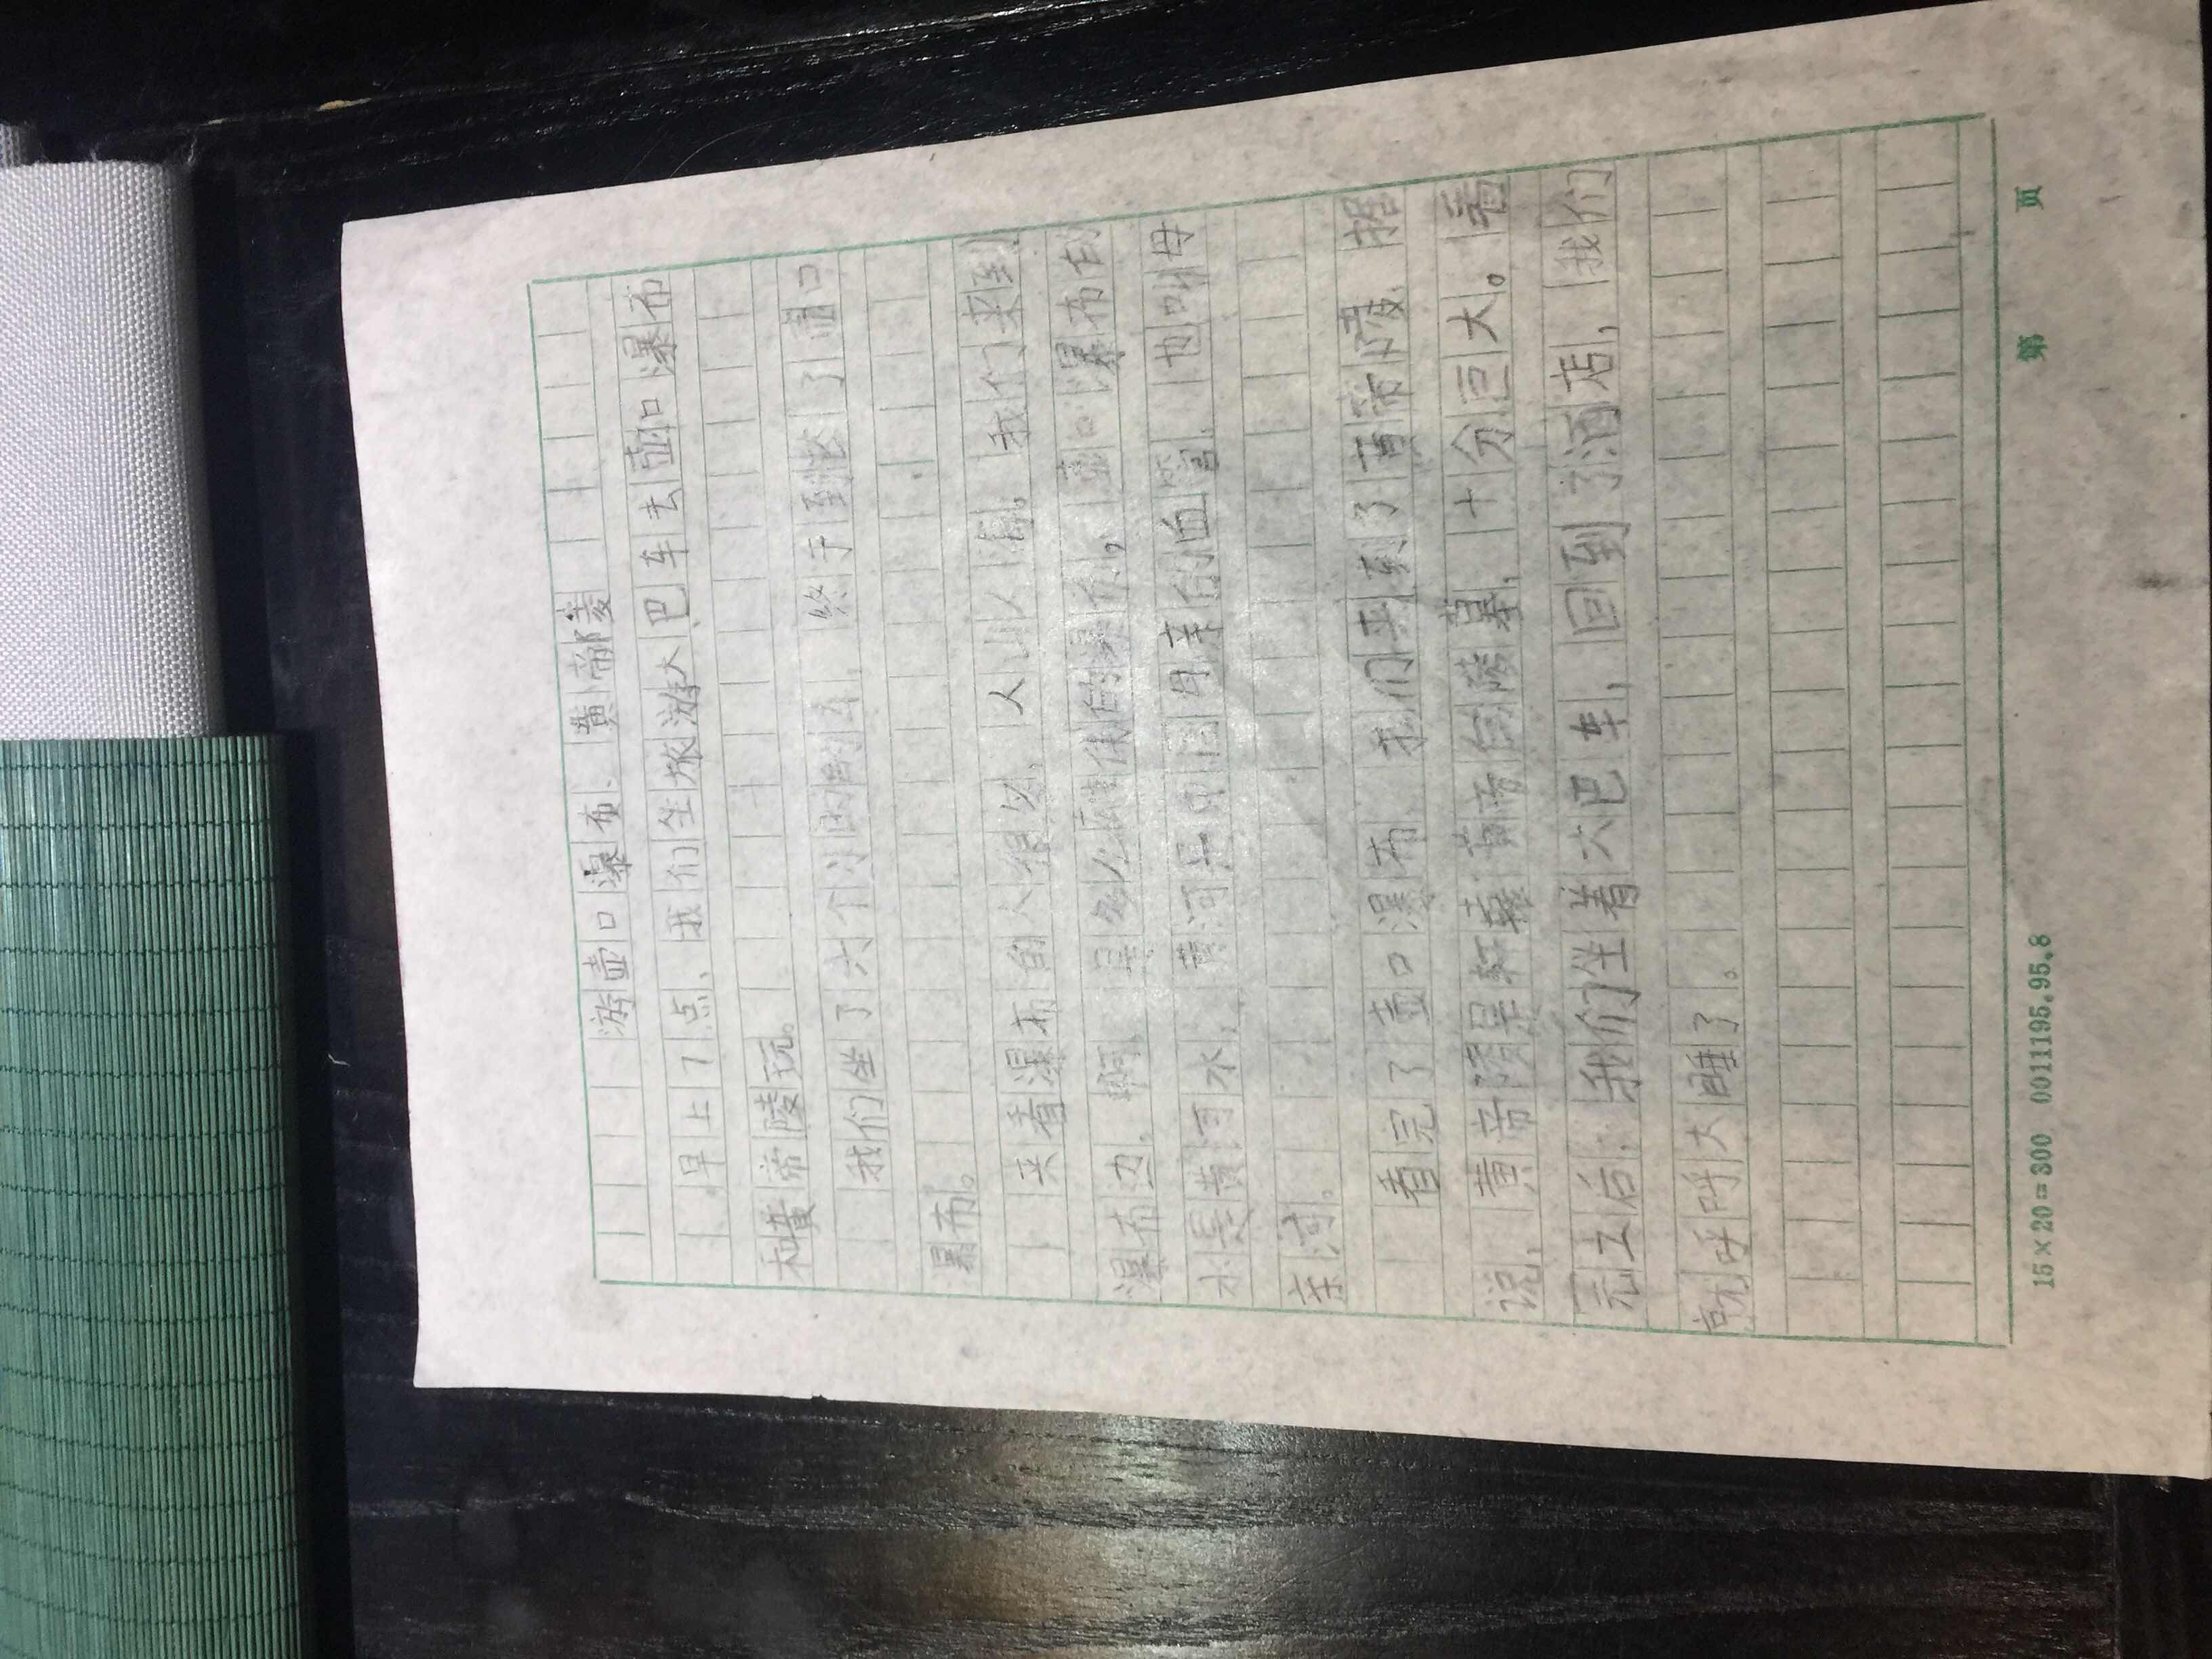 游壶口瀑布、黄帝陵
早上7点,我们坐旅游大巴车去壶口瀑布
和黄帝陵玩。
我们坐了六个小时的车,终于到达了壶口
瀑布。
来看瀑布的人很多,人山人海。我们来到
瀑布边,啊,是多么的瀑布。壶口瀑布的
水是黄河水,黄河是中国母亲的血管,也叫母
亲河。
看完了壶口瀑布,我们来到了黄帝陵,据
说,黄帝陵是轩辕黄帝的陵墓,十分巨大。看
完之后,我们坐着大巴车,回到了酒店,我们
就呼呼大睡了。
15×20=300 0011195.95.8
第 页